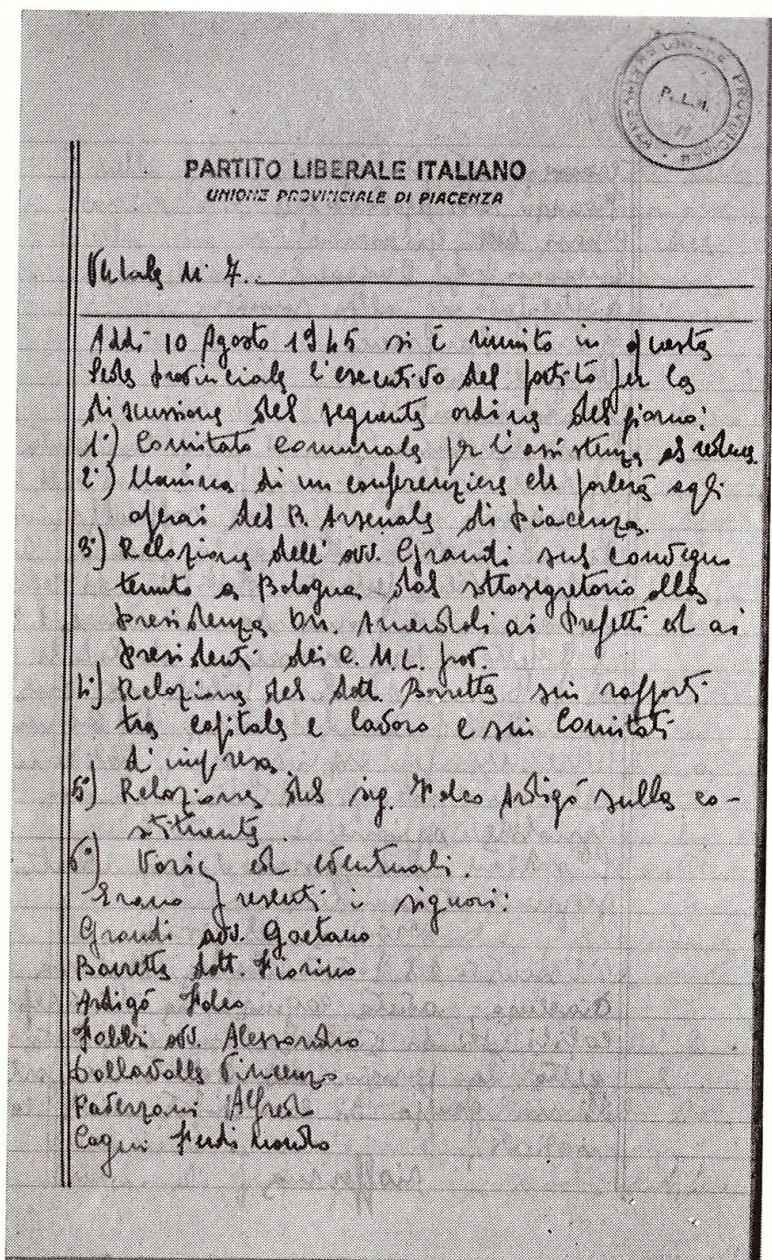 P.L.I.
PARTITO LIBERALE ITALIANO
UNIONE PROVINCIALE DI PIACENZA
Verbale N. 7.
Addì 10 Agosto 1945 si è riunito in questa
Sede provinciale l'esecutivo del partito per la
discussione del seguente ordine del giorno:
1°) Comitato comunale per l'assistenza ai reduci.
2°) Nomina di un conferenziere che parlerà agli
operai del R. Arsenale di Piacenza.
3°) Relazione dell'avv. Grandi sul convegno
tenuto a Bologna dal sottosegretario alla
presidenza On. Amendola ai Prefetti ed ai
presidenti dei C.N.L. prov.
4°) Relazione del dott. Barretta sui rapporti
tra capitale e lavoro e sui Comitati
di impresa.
5°) Relazione del sig. Folco Ardigó sulla co-
stituente.
6°) Varie ed eventuali.
Erano presenti i signori:
Grandi avv. Gaetano
Barretta dott. Fiorino
Ardigó Folco
Fabbri avv. Alessandro
Dallavalle Vincenzo
Paderzani Alfredo
Cagni Ferdinando